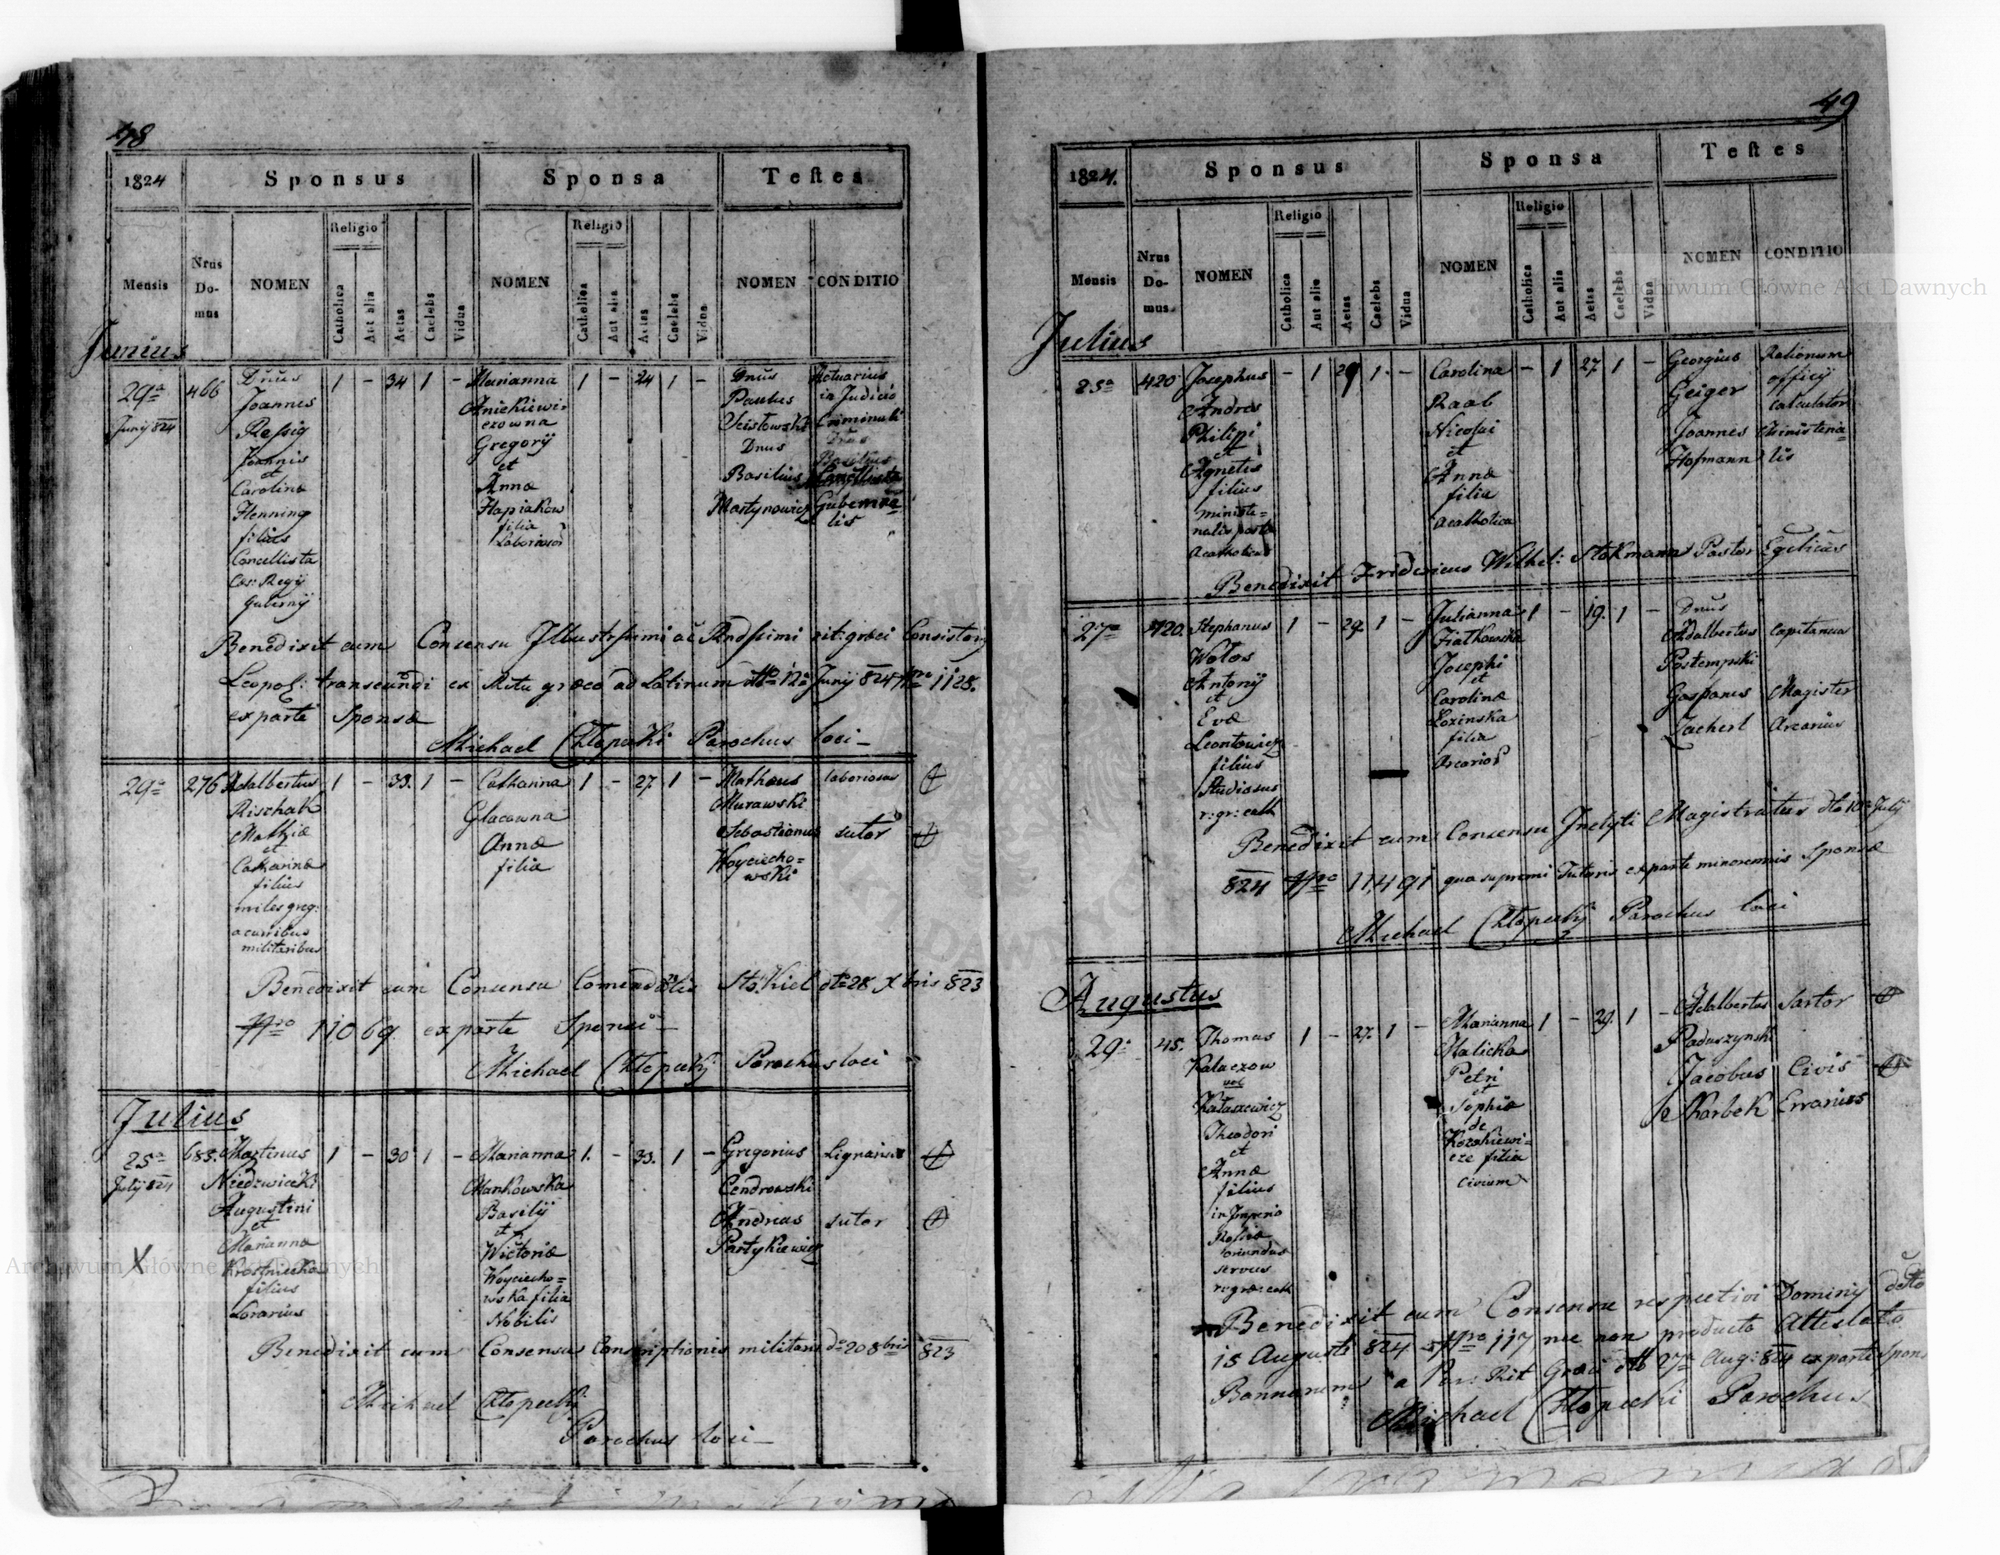 48
1824
Sponsus
Sponsa
Testes
Mensis
Nrus
Do-
mus
NOMEN
Religio
Catholica
Aut alia
Aetas
Caelebs
Vidua
NOMEN
Religio
Catholica
Aut alia
Aetas
Caelebs
Vidua
NOMEN
CONDITIO
Junius
29a
Junij 824
466
Dnus
Joannes
Ressig
Joannis
et
Carolinæ
Henning
filius
Cancellista
Cæs: Regij
Gubernij
1 – 34 1 –
Marianna
Anickiewi-
czowna
Gregorij
et
Annæ
Hapiakow
filia
Laboriosor
1 – 24 1 –
Dnus
Paulus
Scislowski
Dnus
Basilius
Martynowicz
Actuarius
in Judicio
Criminali
Cancellista
Guberna-
lis
Benedixit cum Consensu Illustrissimi ac Rndssimi rit: græci Consistorij
Leopol: transeundi ex Ritu græco ad Latinum dtto 12a Junij 824 Nro 1128.
ex parte Sponsæ
Michael Chłopecki Parochus loci –
29a
276
Adalbertus
Rischak
Mathiæ
et
Catharinæ
filius
miles greg:
a curribus
militaribus
1 – 33. 1 –
Catharina
Glacowna
Annæ
filia
1 – 27. 1 –
Matheus
Murawski
Sebastianus
Woyciecho=
wski
laboriosus
sutor
Benedixit cum Consensu Comendantis Sto. Kiel dto 28 Xbris 823
Nro 11069. ex parte Sponsi –
Michael Chłopecky Parochus loci
Julius
25a
July 824
683.
Martinus
Niedzwiecki
Augustini
et
Mariannæ
Krostnecka
filius
Lorarius
1 – 30 1 –
Marianna
Mankowska
Basilij
et
Wictoriæ
Woyciecho=
wska filia
Nobilis
1. – 33. 1 –
Gregorius
Cendrowski
Andreas
Partykiewicz
Lignarius
sutor
Benedixit cum Consensu Conscriptionis militaris do 20 8bris 823
Michael Chłopecky
Parochus loci –
49
1824.
Sponsus
Sponsa
Testes
Mensis
Nrus
Do-
mus
NOMEN
Religio
Catholica
Aut alia
Aetas
Caelebs
Vidua
NOMEN
Religio
Catholica
Aut alia
Aetas
Caelebs
Vidua
NOMEN
CONDITIO
Julius
25a
420
Josephus
Andres
Philippi
et
Agnetis
filius
ministe=
rialis
Acatholicus
– 1 29 1 –
Carolina
Raab
Nicolai
et
Annæ
filia
acatholica
– 1 27 1 –
Georgius
Geiger
Joannes
Hofmann
Rationum
officij
calculator
Ministeria=
lis
Benedixit Fridericus Wilhel: Stokmann Pastor Egelicus
27a
420.
Stephanus
Wolos
Antonij
et
Evæ
Leontowicz
filius
Studiosus
r: gr: cath
1 – 29. 1 –
Julianna
Fiatkowska
Josephi
et
Carolinæ
Lozinska
filia
Arcarior
1 – 19. 1 –
Dnus
Adalbertus
Postempski
Gasparus
Zachert
capitanus
Magister
Arcarius
Benedixit cum Consensu Inclyti Magistratus dto 10a July
824 Nro 11,491 qua supremi Tutoris ex parte minorennis Sponsæ
Michael Chłopecky Parochus loci
Augustus
29a
45.
Thomas
Kalaczow
vel
Kalaszewicz
Theodori
et
Annæ
filius
in Imperio
Rossiæ
oriundus
servus
r: græ: cath
1 – 27. 1 –
Marianna
Malicka
Petri
et
Sophiæ
de
Kozakiewi=
cze filia
civium
1 – 29. 1 –
Adalbertus
Paduszynski
Jacobus
Skarbek
Sartor
Civis
Benedixit cum Consensu respectivi Dominij de dto
15 Augusti 824 Nro 117, nec non producto Attestato
Bannorum a Par: Rit Græci dto 27a Aug: 824 ex parte Spons
Michael Chłopecki Parochus
Archiwum Główne Akt Dawnych
Archiwum Główne Akt Dawnych